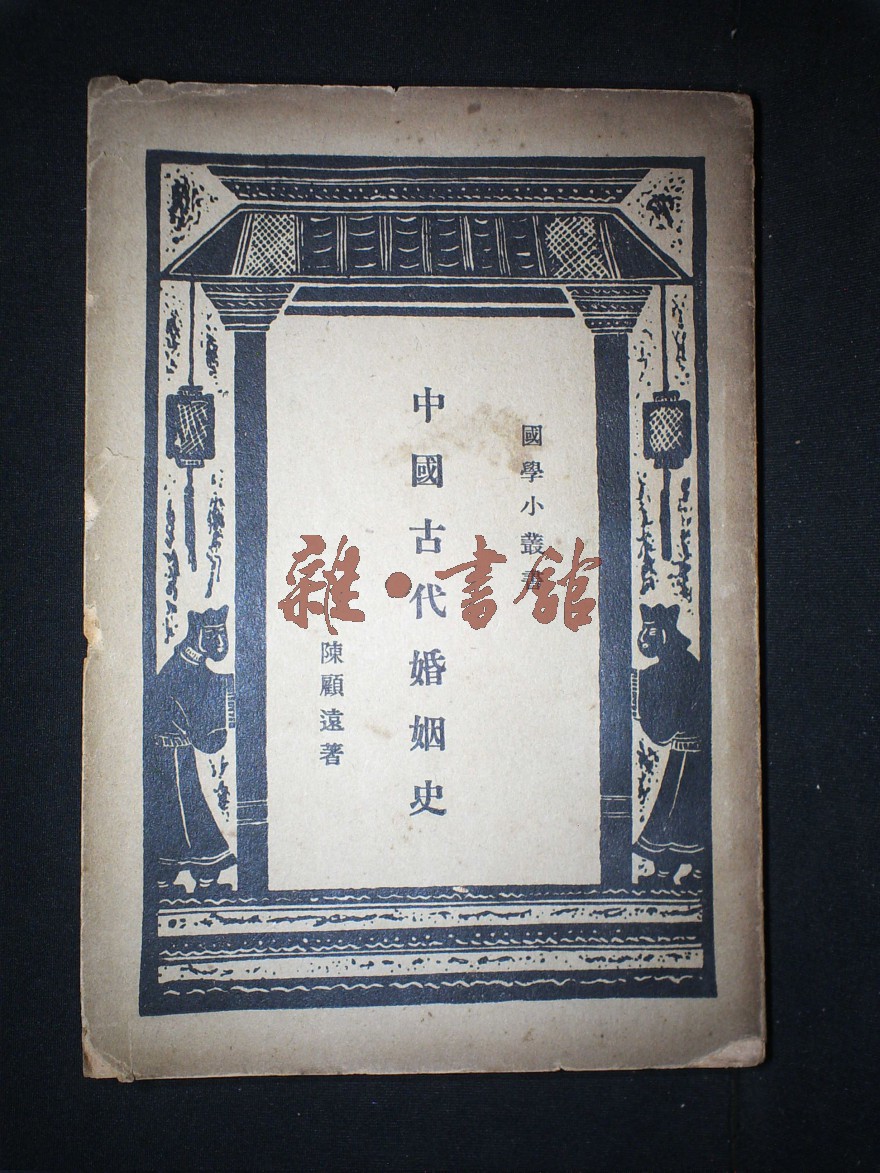 國學小叢書
中國古代婚姻史
陳顧遠著
雜·書館